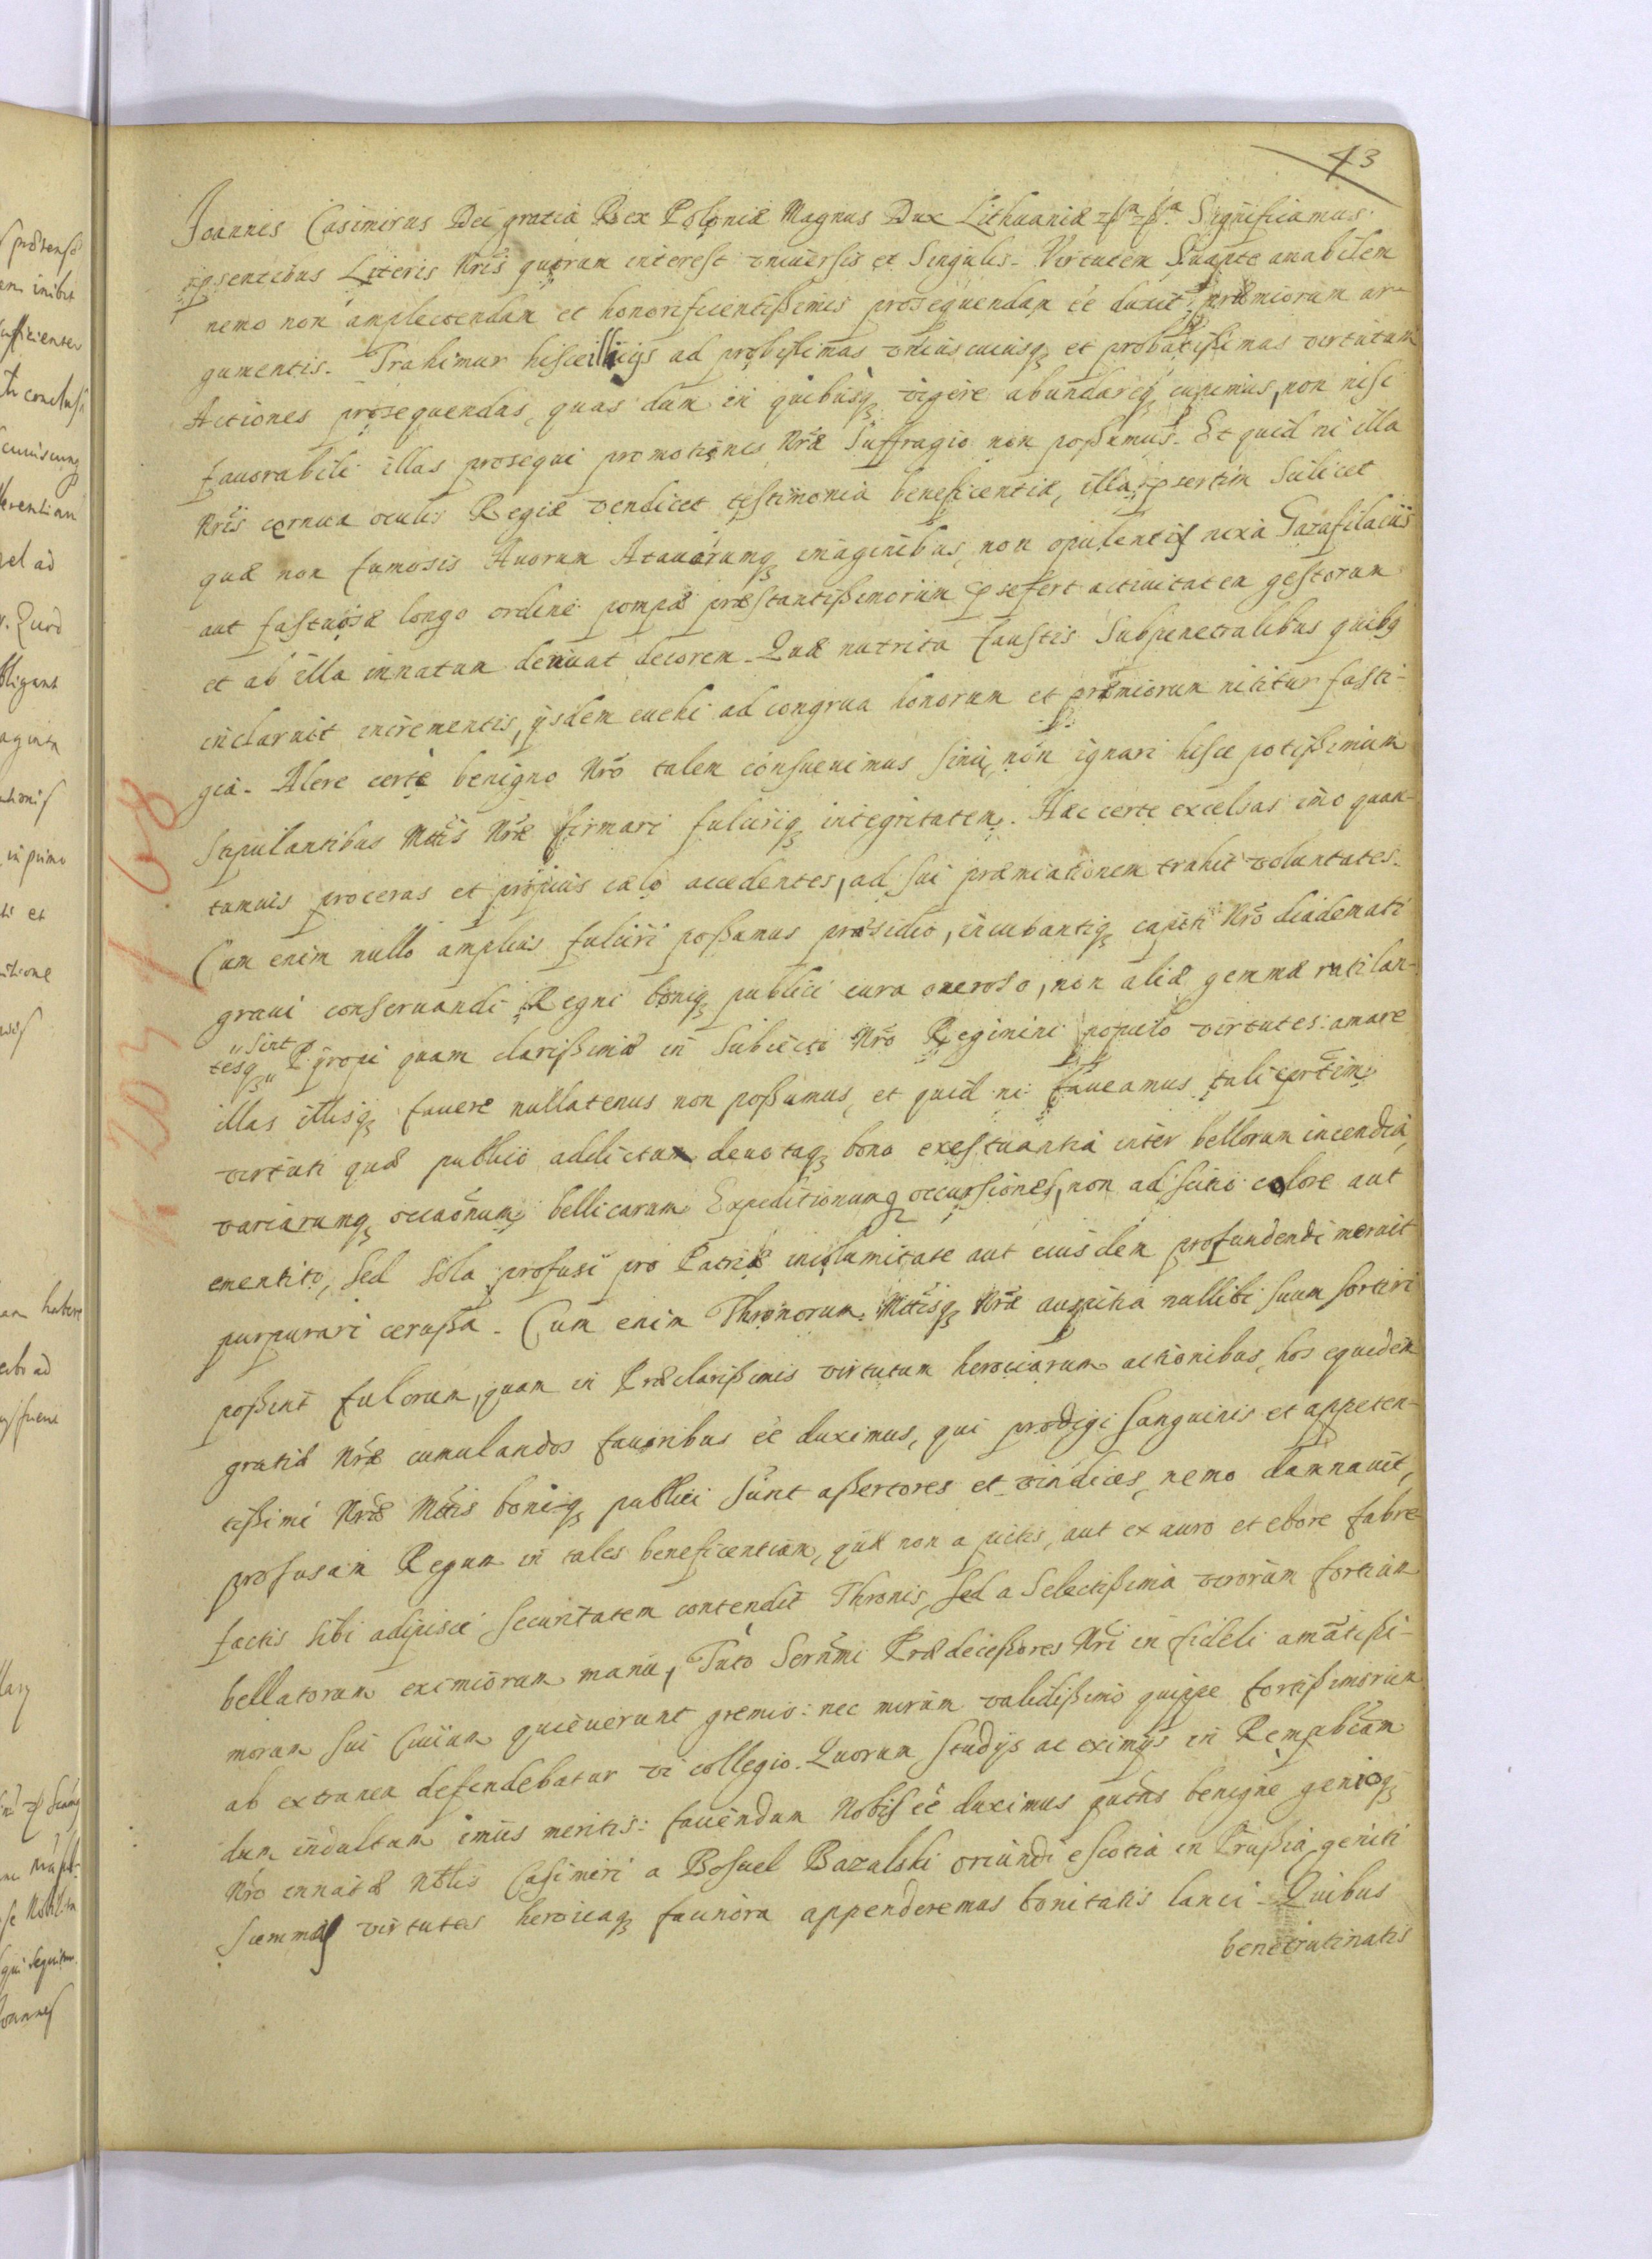 43
Joannes Casimirus Dei gratia Rex Poloniæ Magnus Dux Lithuaniæ Significamus
pñsentibus Literis Nris quorum interest vniuersis et Singulis. Virtutem Suapte amabilem
nemo non amplectendam et honorificentißimis prosequendam eẽ duxit præmiorum ar-
gumentis. Trahimur hisce illicijs ad probißimas vnius cuiusq et probatißimas virtutum
Actiones prosequendas, quas dum in quibusq vigere abundareq cupimus, non nisi
fauorabili illas prosequi promotionis Nræ Suffragio non poßumus. Et quid ni illa
Nris cernua oculis Regiæ vendicet testimonia beneficentiæ, illa psertim Scilicet
quæ non fumosis Auorum Atauorumq imaginibus, non opulentis nixa Gazafilaciis
aut fastuosæ longo ordine pompæ præstantißimorum psefert actiuitatem gestorum
et ab illa innatum deriuat decorem. Quæ nutrita faustis Subpenetralibus quibq
inclaruit incrementis, ijsdem euehi ad congrua honorum et præmiorum nititur fasti-
gia. Alere certe benigno Nro talem consueuimus sinu, non ignari hisce potißimum
stipulantibus Mttis Nræ firmari fulciriq integritatem. Hæc certe excelsas imo quan-
tumuis proceras et propius cælo accedentes, ad sui præmiationem trahit voluntates.
Cum enim nullo amplius fulciri poßumus præsidio, incubantiq capiti Nro diademati
graui conseruandi Regni boniq publici cura oneroso, non aliæ gemmæ rutilan-
tesq sint Pyropi quam clarißimæ in Subiecto Nro Regimini populo virtutes: amare
illas illisq fauere nullatenus non poßumus, et quid ni faueamus tali prtim
virtuti quæ publico addictam deuotaq bono exestuantia inter bellorum incendia,
variarumq occaõnum bellicarum Expeditionumq occursiones, non adscitio colore aut
ementito, sed sola profusi pro Patriæ incolumitate aut eiusdem profundendi meruit
purpurari cerußa. Cum enim Thronorum Mttisq Nræ auspitia nullibi suum sortiri
poßint fulcrum, quam in Præclarißimis virtutum heroicarum actionibus, hos equidem
gratiæ Nræ cumulandos fauoribus eẽ duximus, qui prodigi sanguinis et appeten-
tißimi Nræ Mttis boniq publici sunt aßertores et vindices, nemo damnauit,
profusam Regum in tales beneficentiam, quæ non a pictis, aut ex auro et ebore fabre
factis sibi adipisci securitatem contendit Thronis, sed a Selectißima virorum fortium
bellatorum eximiorum manu, Tuto Sernmi Prædeceßores Nri in fideli amatißi-
morum sui Ciuium quieuerunt gremio: nec mirum validißimo quippe fortißimorum
ab extranea defendebatur vi collegio. Quorum studijs ac eximijs in Rempblcam
dum indultum imus meritis: fauendum Nobis eẽ duximus quatns benigne genioq
Nro innatæ Nblis Casimiri a Bosuel Bazalski oriundi e Scotia in Prußia geniti
summas virtutes heroicaq facinora appenderemus bonitatis lanci. Quibus
benetrutinatis